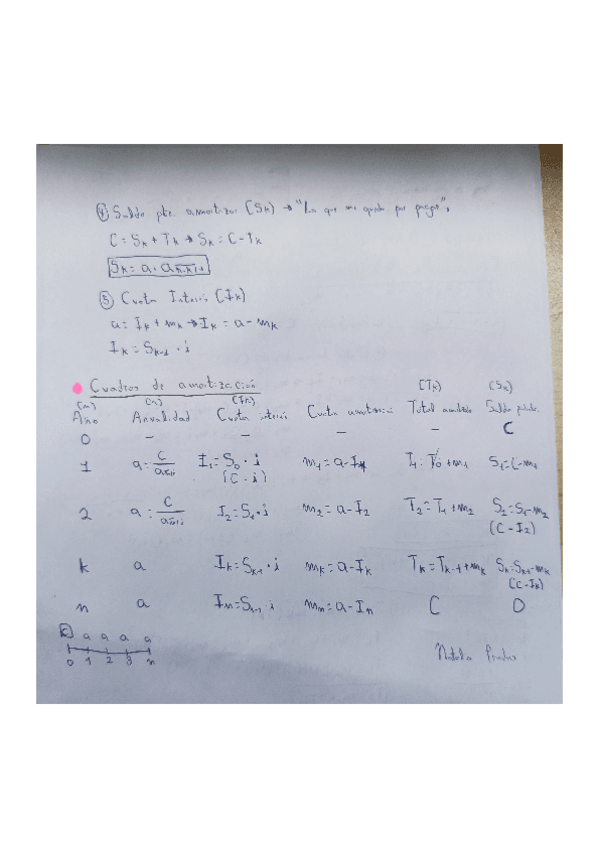 ④ Saldo pte. amortizar (Sk) → "Lo que me queda por pagar".
C = Sk + Tk → Sk = C - Tk
Sk = a · a n-k|i
⑤ Cuota Interés (Ik)
a = Ik + mk → Ik = a - mk
Ik = Sk-1 · i
Cuadros de amortización (Tk) (Sk)
(n) (a) (Ik)
Año Anualidad Cuota interés Cuota amortización Total Saldo
0 - - - - C
1 a = C / a n|i I1 = S0 · i m1 = a - I1 T1 = T0 + m1 S1 = C - m1
(C · i)
2 a = C / a n|i I2 = S1 · i m2 = a - I2 T2 = T1 + m2 S2 = S1 - m2
(C - I2)
k a Ik = Sk-1 · i mk = a - Ik Tk = Tk-1 + mk Sk = Sk-1 - mk
(C - Ik)
n a In = Sn-1 · i mn = a - In C 0
C a a a a
0 1 2 3 n
Natalia